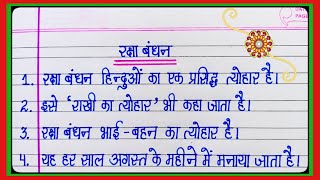 DATE
PAGE
रक्षा बंधन
1. रक्षा बंधन हिन्दुओं का एक प्रसिद्ध त्योहार है।
2. इसे 'राखी का त्योहार' भी कहा जाता है।
3. रक्षा बंधन भाई-बहन का त्योहार है।
4. यह हर साल अगस्त के महीने में मनाया जाता है।